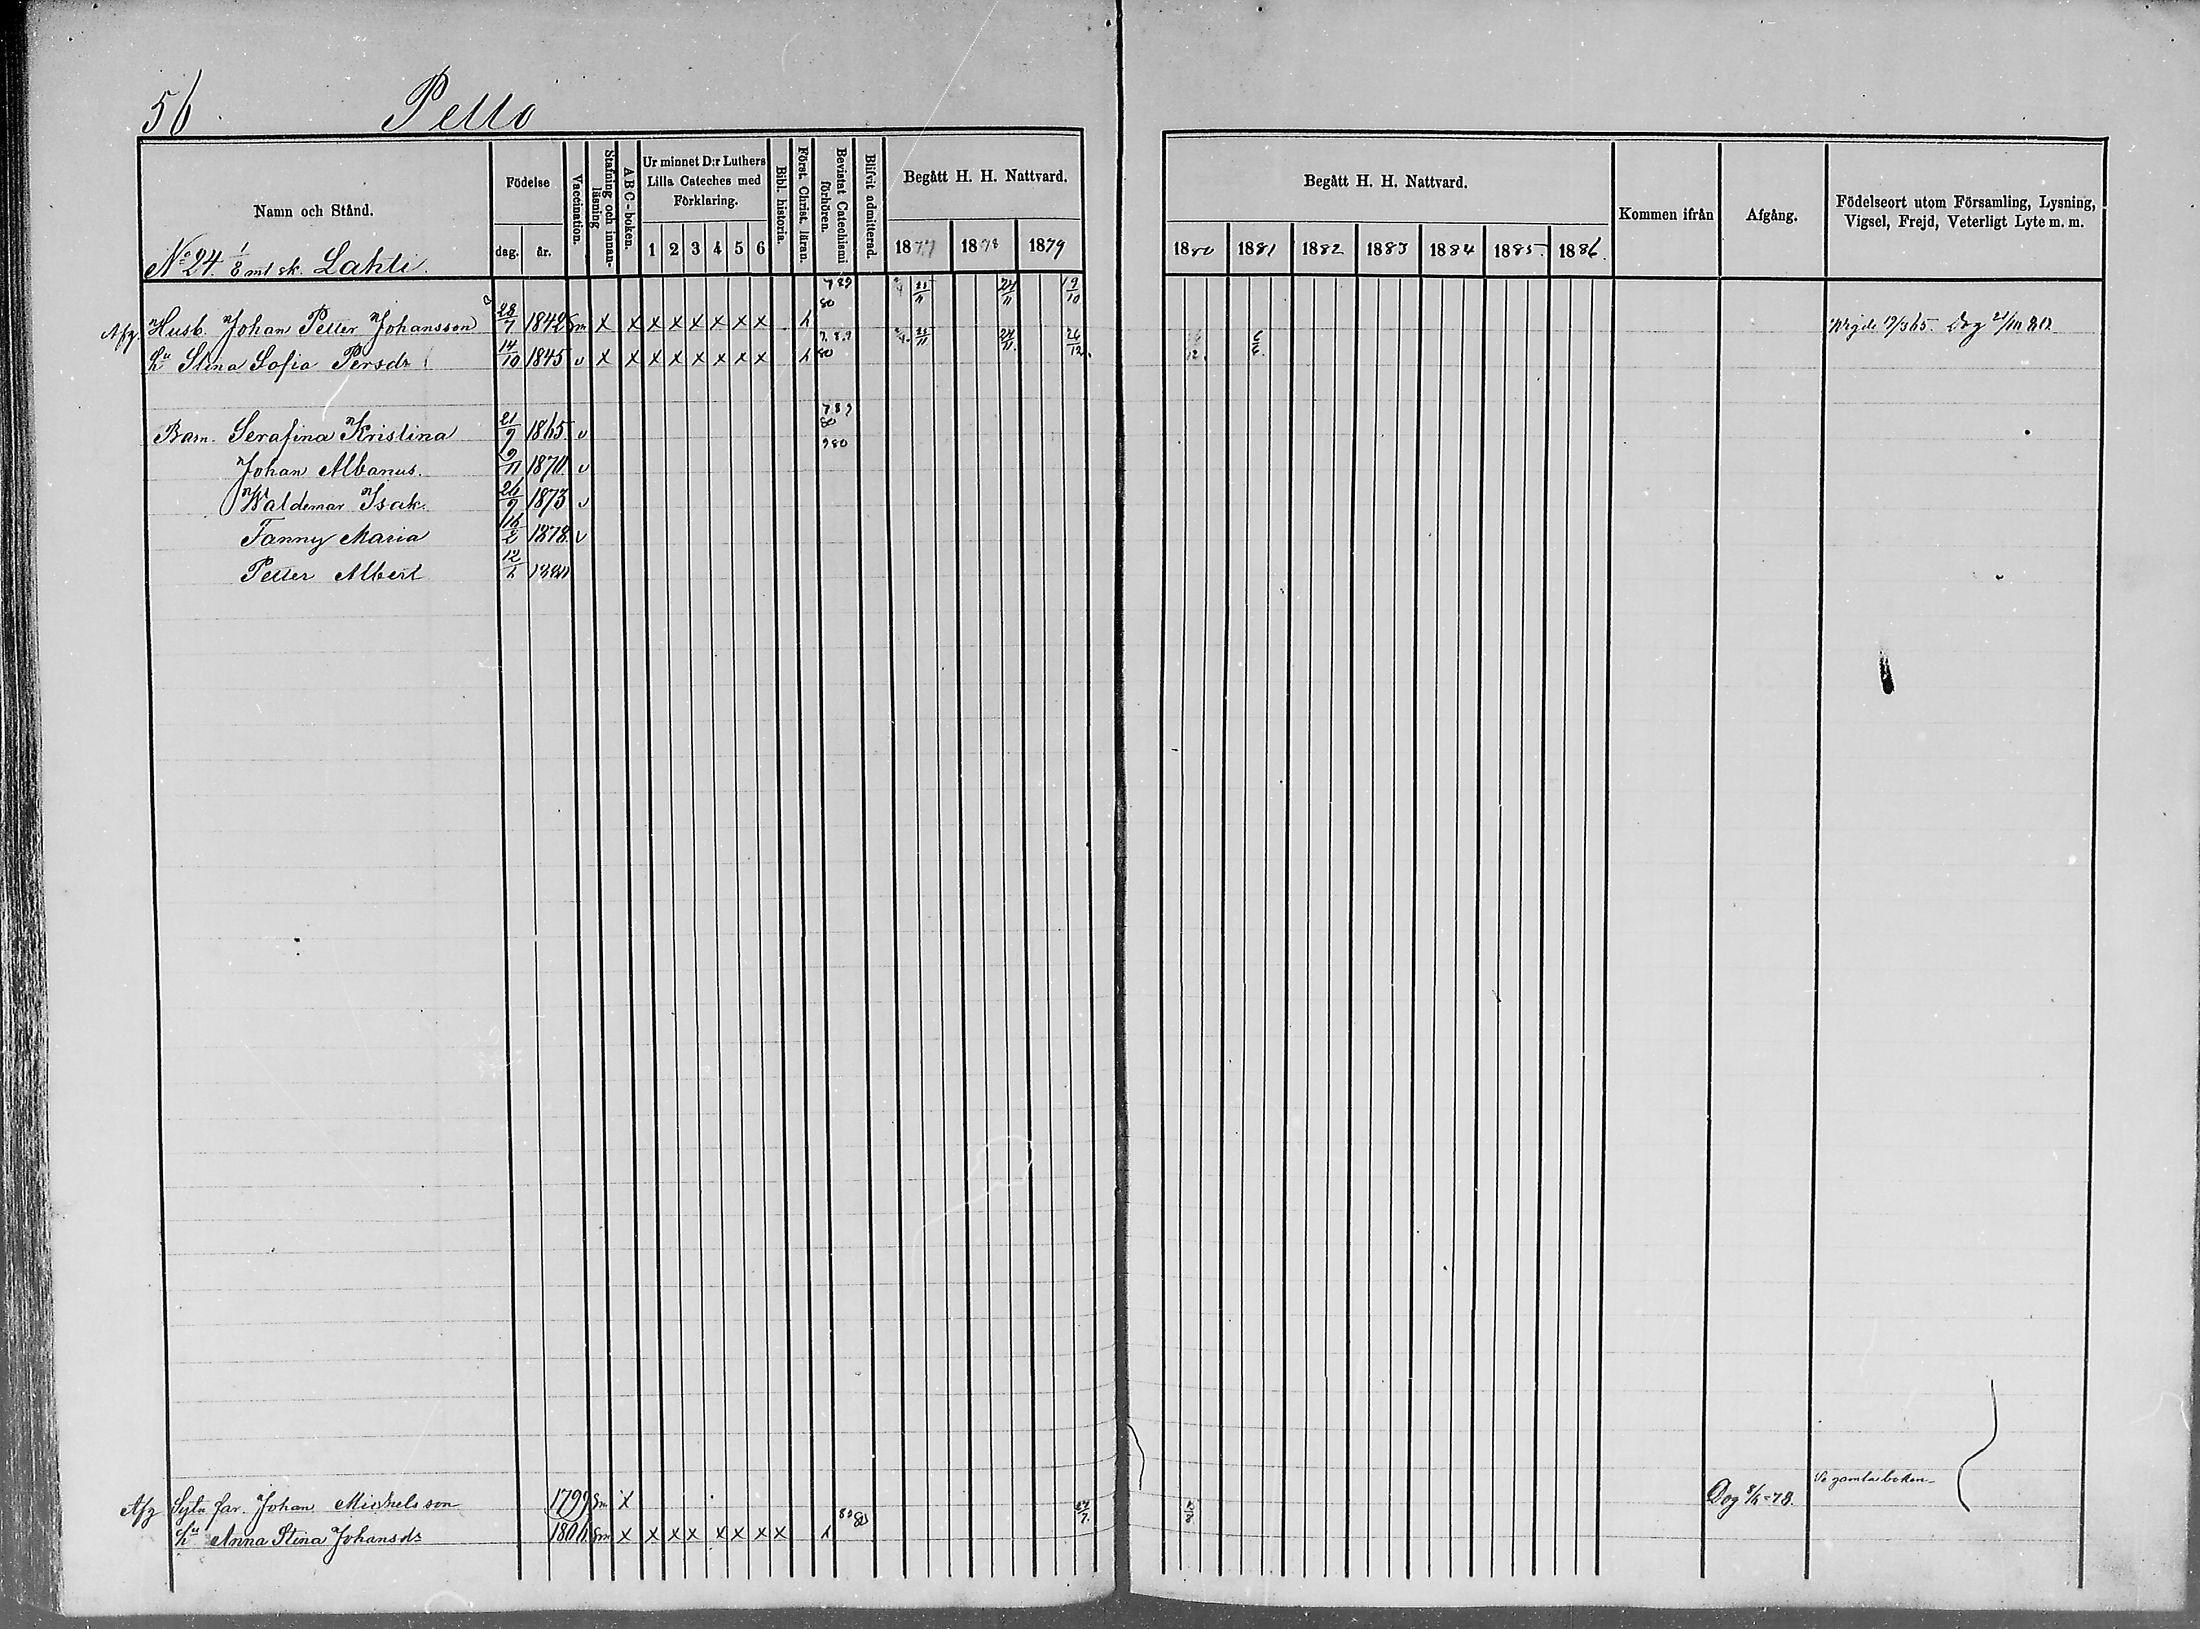 56. Pello
Namn och Stånd. Födelse dag. år. Vaccination. Stafning och innan-läsning A B C-boken. Ur minnet D:r Luthers Lilla Cateches med Förklaring. 1 2 3 4 5 6 Bibl. historia. Först. Christ. läran. Bevistat Catechismi förhören. Blifvit admitterad. Begått H. H. Nattvard. 1877 1878 1879
Begått H. H. Nattvard. 1880 1881 1882 1883 1884 1885. 1886. Kommen ifrån Afgång. Födelseort utom Församling, Lysning, Vigsel, Frejd, Veterligt Lyte m. m.
No 24. 1/8 mt sk. Lahti.
789 25/11 24/11 9/10
Afg. Husb. Johan Petter Johansson 28/7 1842 Sm x x x x x x x x 80 Wigde 19/3 65. Dog 21/10 80
hu Stina Sofia Persdr 14/10 1845 v x x x x x x x x 789 80 25/11 24/11. 26/12. 6/6.
Barn. Serafina Kristina 21/9 1865 v 789 80
Johan Albanus. 9/11 1870 v 980
Waldemar Isak. 26/9 1873 v
Fanny Maria 16/2 1878 v
Petter Albert 12/1 1880
Afg Sytn. far. Johan Mickelsson 1799 Sm x Dog 8/5 -78. Se gamla boken
hu Anna Stina Johansdr 1806 Sm x x x x x x x x 80 27/7.